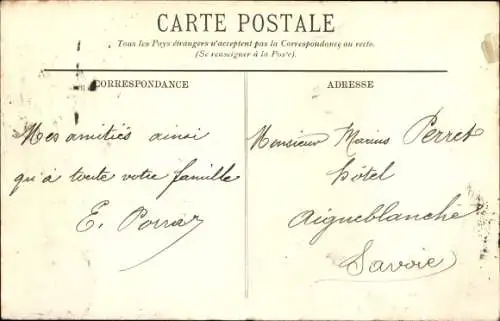 CARTE POSTALE
Tous les Pays étrangers n'acceptent pas la Correspondance au recto.
(Se renseigner à la Poste).
CORRESPONDANCE
ADRESSE
Mes amitiés ainsi
qu'à toute votre famille
E. Porraz
Monsieur Marius Perret
hôtel
Aigueblanche
Savoie